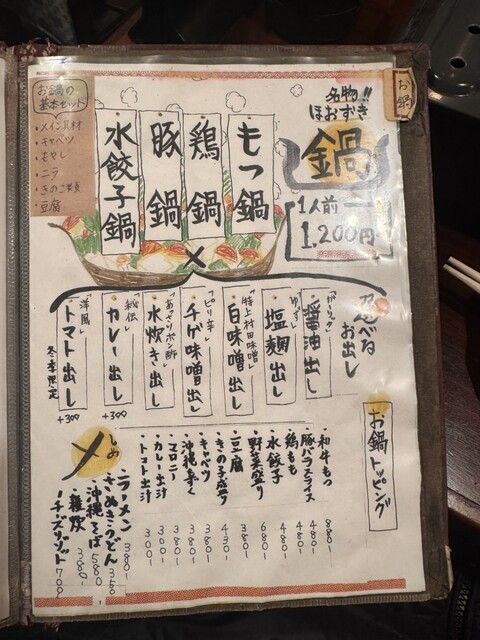 お鍋
名物!!
ほおずき
鍋
1人前
1,200円
もつ鍋
鶏鍋
豚鍋
水餃子鍋
お鍋の
基本セット
・メイン具材
・キャベツ
・もやし
・ニラ
・きのこ類
・豆腐
×
選べる
お出し
「ガーリック」
醤油出し
「ゆず」
塩麹出し
「特上村田味噌」
白味噌出し
「ピリ辛」
チゲ味噌出し
「あっさりポン酢」
水炊き出し
「秘伝」
カレー出し
+300
「洋風」
トマト出し
冬季限定
+300
お鍋トッピング
・和牛もつ 880-
・豚バラスライス 480-
・鶏もも 480-
・水餃子 480-
・野菜盛り 680-
・豆腐 380-
・きのこ盛り 430-
・キャベツ 380-
・沖縄 380-
・マロニー 380-
・カレー出汁 300-
・トマト出汁 300-
しめ
〆
・ラーメン 380-
・さぬきうどん 380-
・沖縄そば 580-
・雑炊 380-
・チーズリゾット 700-